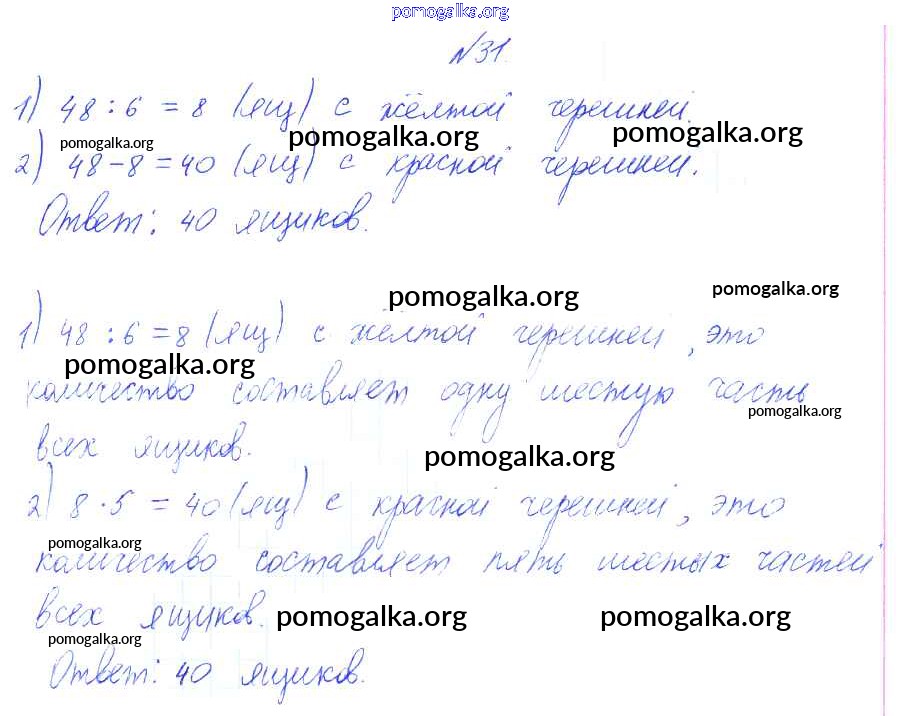 pomogalka.org
№31.
1) 48 : 6 = 8 (ящ) с жёлтой черешней.
pomogalka.org pomogalka.org pomogalka.org
2) 48 - 8 = 40 (ящ) с красной черешней.
Ответ: 40 ящиков.
pomogalka.org pomogalka.org
1) 48 : 6 = 8 (ящ) с жёлтой черешней, это
pomogalka.org
количество составляет одну шестую часть
pomogalka.org
всех ящиков.
pomogalka.org
2) 8 · 5 = 40 (ящ) с красной черешней, это
pomogalka.org
количество составляет пять шестых частей
всех ящиков.
pomogalka.org pomogalka.org
pomogalka.org
Ответ: 40 ящиков.